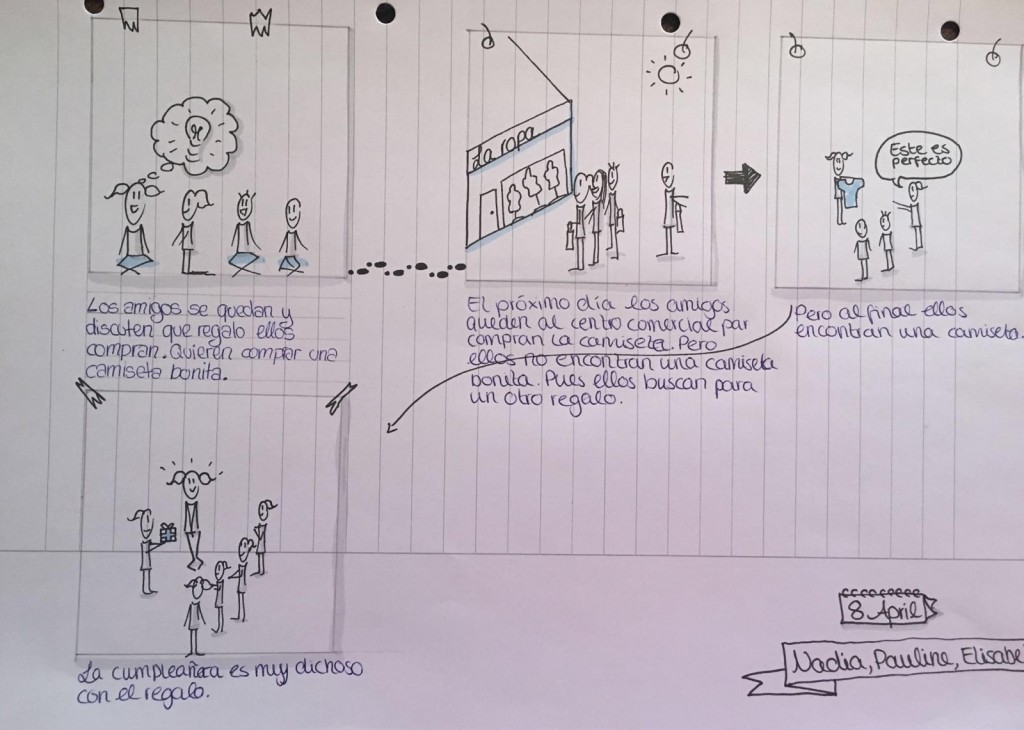 Los amigos se quedan y
discuten que regalo ellos
compran. Quieren comprar una
camiseta bonita.
La ropa
El próximo día los amigos
queden al centro comercial par
compran la camiseta. Pero
ellos no encontran una camiseta
bonita. Pues ellos buscan para
un otro regalo.
Este es
perfecto
Pero al final ellos
encontran una camiseta.
La cumpleañera es muy dichoso
con el regalo.
8 April
Nadia, Pauline, Elisabe